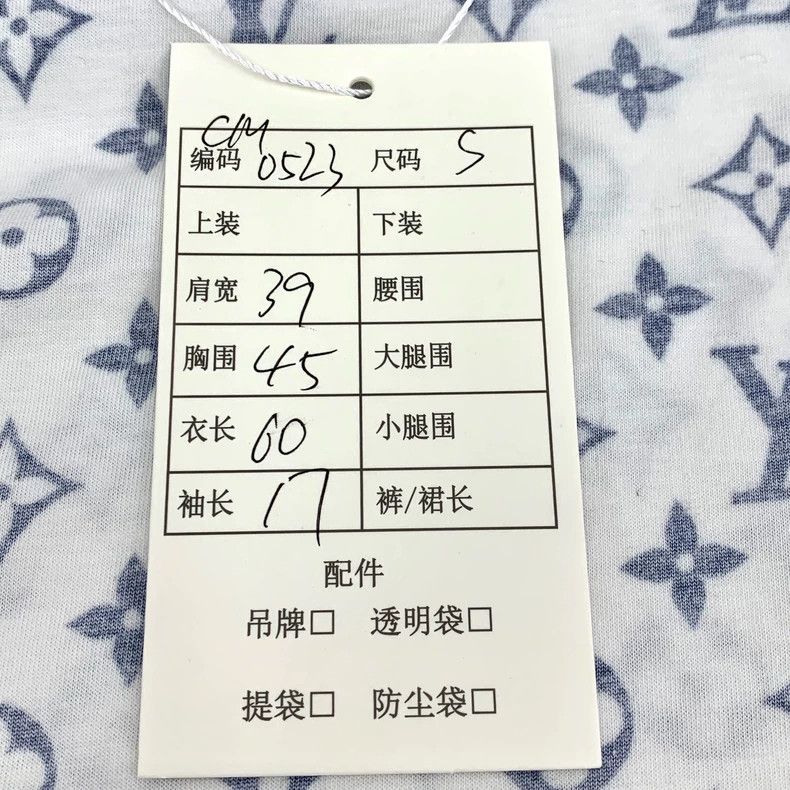 CM
编码 0523 尺码 S
上装 下装
肩宽 39 腰围
胸围 45 大腿围
衣长 60 小腿围
袖长 17 裤/裙长
配件
吊牌□ 透明袋□
提袋□ 防尘袋□